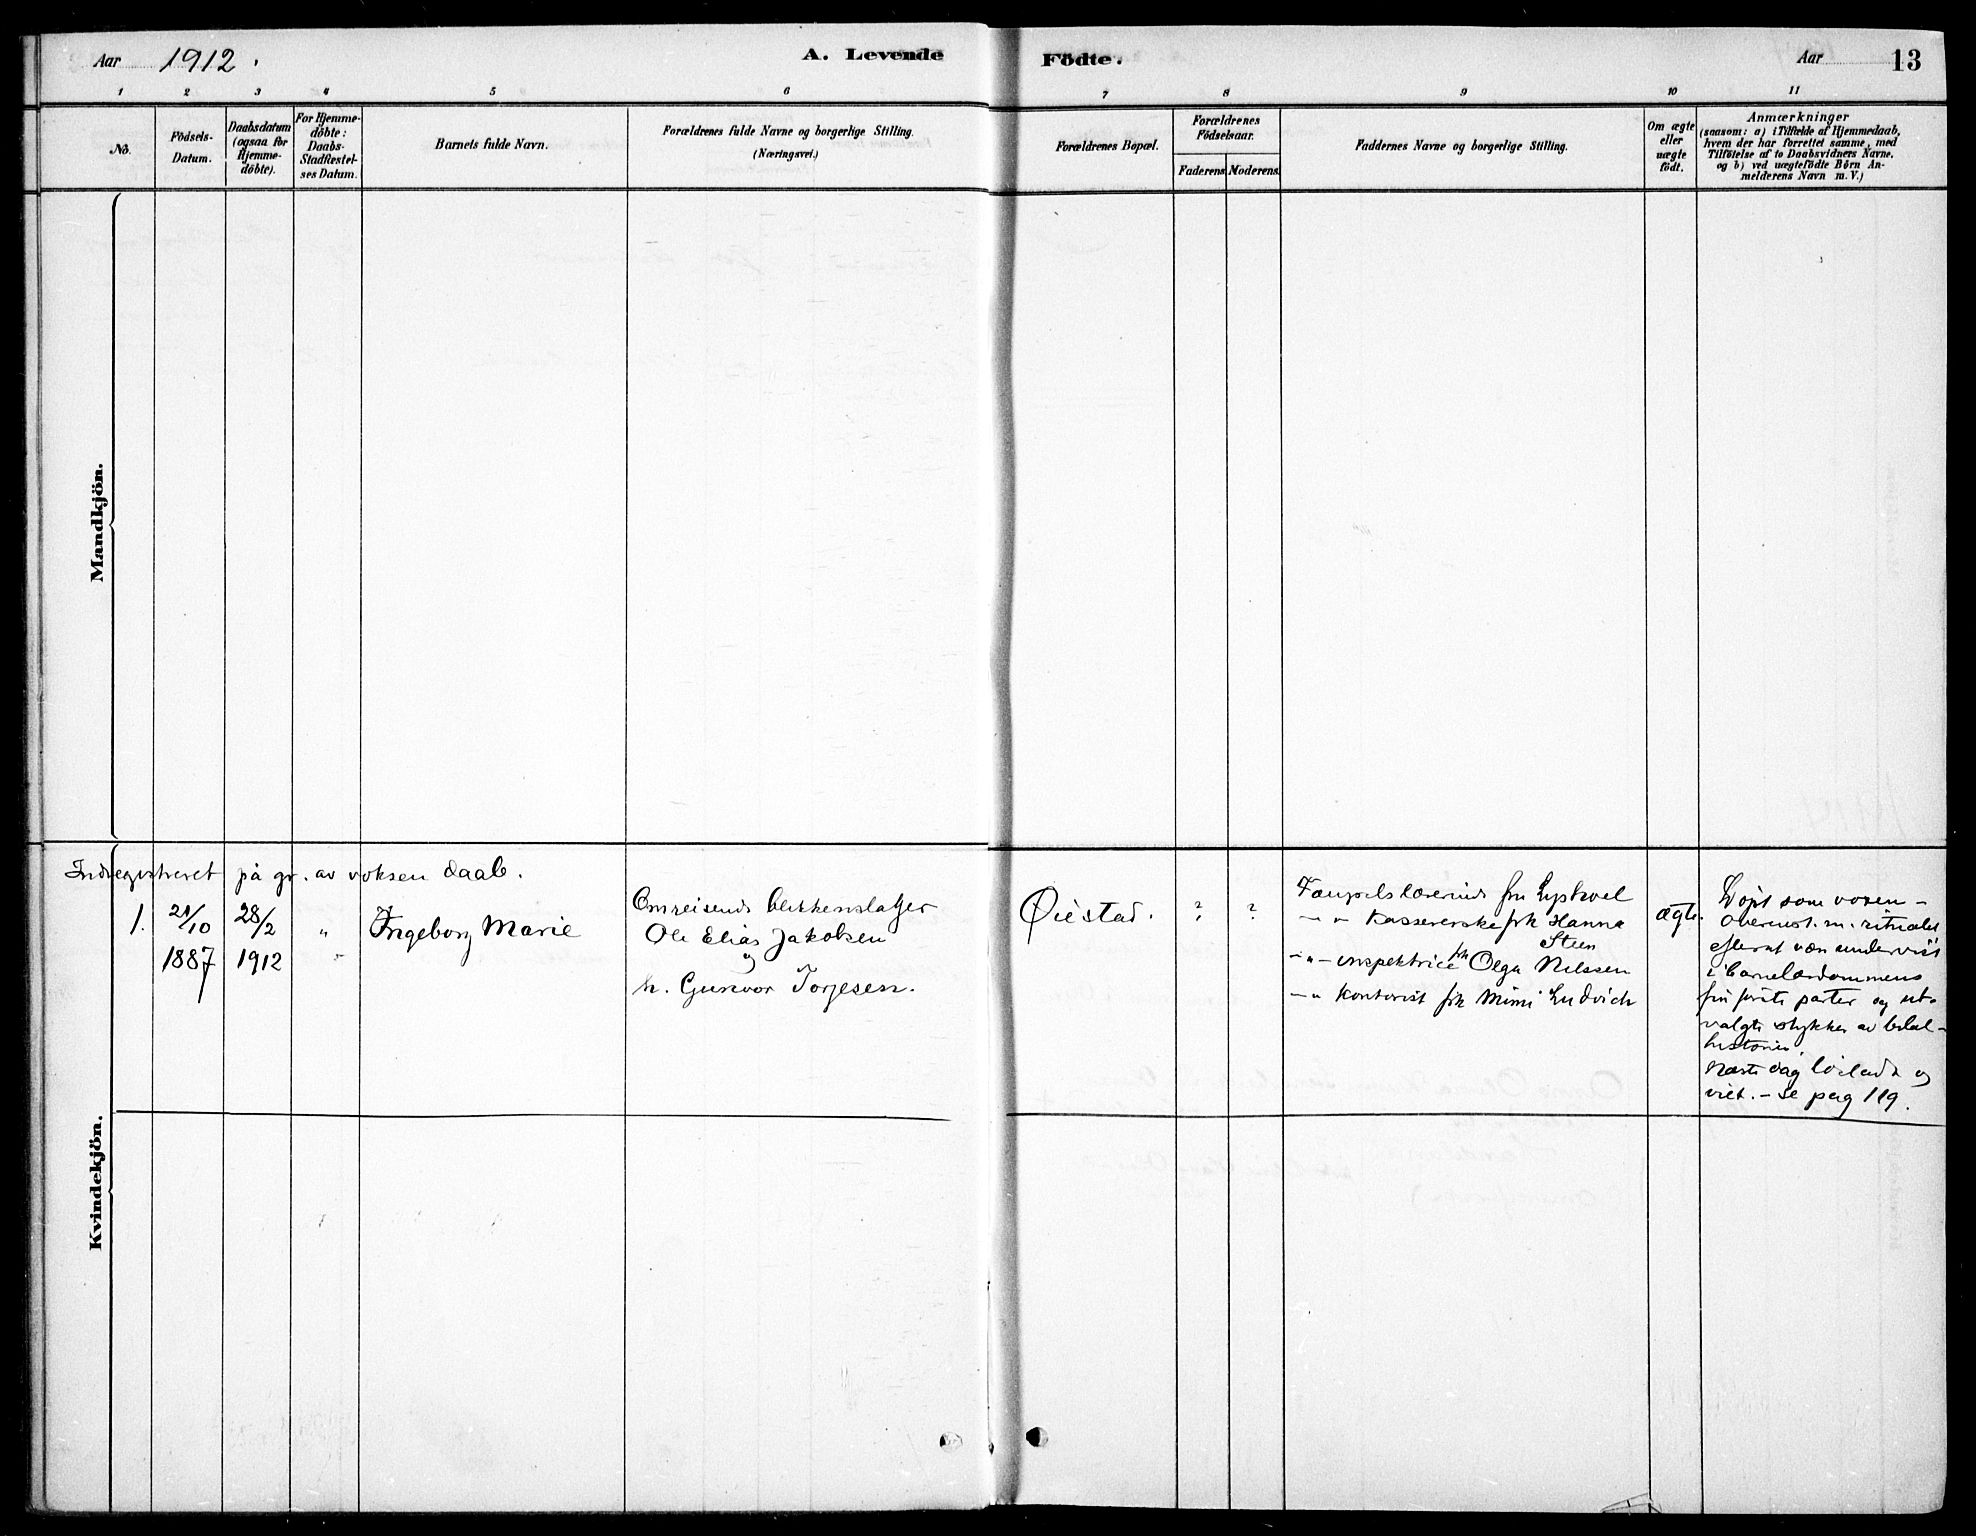 Aar 1912.
A. Levende
Födte.
Aar
13
1 2 3 4 5 6 7 8 9 10 11
No.
Födsels-
Datum.
Daabsdatum
(ogsaa for
Hjemme-
döbte).
For Hjemme-
döbte:
Daabs-
Stadfæstel-
ses Datum.
Barnets fulde Navn.
Forældrenes fulde Navne og borgerlige Stilling.
(Næringsvei.)
Forældrenes Bopæl.
Forældrenes
Födselsaar.
Faderens.
Moderens.
Faddernes Navne og borgerlige Stilling.
Om ægte
eller
uægte
födt.
Anmærkninger
(saasom: a) i Tilfælde af Hjemmedaab,
hvem der har forrettet samme, med
Tilföielse af to Daabsvidners Navne,
og b) ved uægtefödte Börn An-
melderens Navn m. V.)
Mandkjön.
Kvindekjön.
Indregistreret på gr. av voksen daab.
1.
21/10
1887
28/2
1912
"
"
Ingeborg Marie
Omreisende blikkenslager
Ole Elias Jakobsen
og
h. Gunvor Torjesen.
Øiestad.
?
?
Fængselslærerinde fru
- " - Kassererske frk Hanna
Steen
- " - inspektrice frk Olga Nilssen
- " Kontorist frk Mimi Ludvich
ægte.
Døpt som voxen -
overenst. m. ritualet
efterat være undervist
i barnelærdommens
første parter og ut-
valgte stykker av bibel-
historien.
Næste dag løsladt og
viet. - Se pag 119.